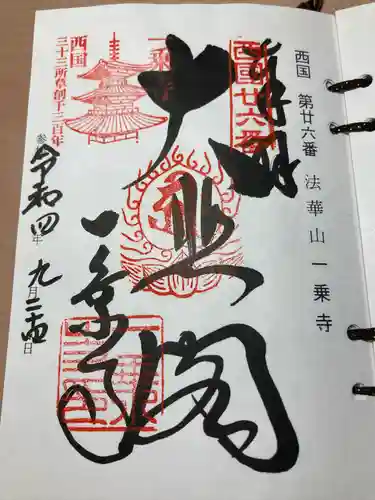 西国 第廿六番 法華山一乗寺
奉拝
西國廿六番
大悲閣
一乗寺
一乗
西国
三十三所草創千三百年
令和四年九月二十四日